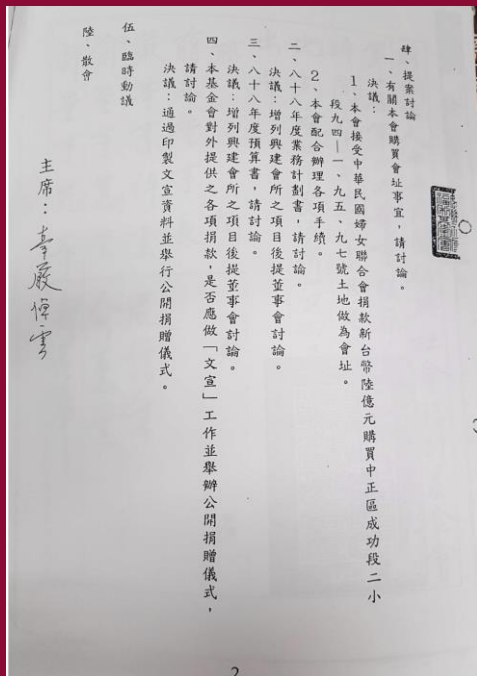 肆、提案討論
一、有關本會購買會址事宜，請討論。
決議：
1、本會接受中華民國婦女聯合會捐款新台幣陸億元購買中正區成功段二小
段九四—一、九五、九七號土地做為會址。
2、本會配合辦理各項手續。
二、八十八年度業務計劃書，請討論。
決議：增列興建會所之項目後提董事會討論。
三、八十八年度預算書，請討論。
決議：增列興建會所之項目後提董事會討論。
四、本基金會對外提供之各項捐款，是否應做「文宣」工作並舉辦公開捐贈儀式，
請討論。
決議：通過印製文宣資料並舉行公開捐贈儀式。
伍、臨時動議
陸、散會
主席：辜嚴倬雲
2